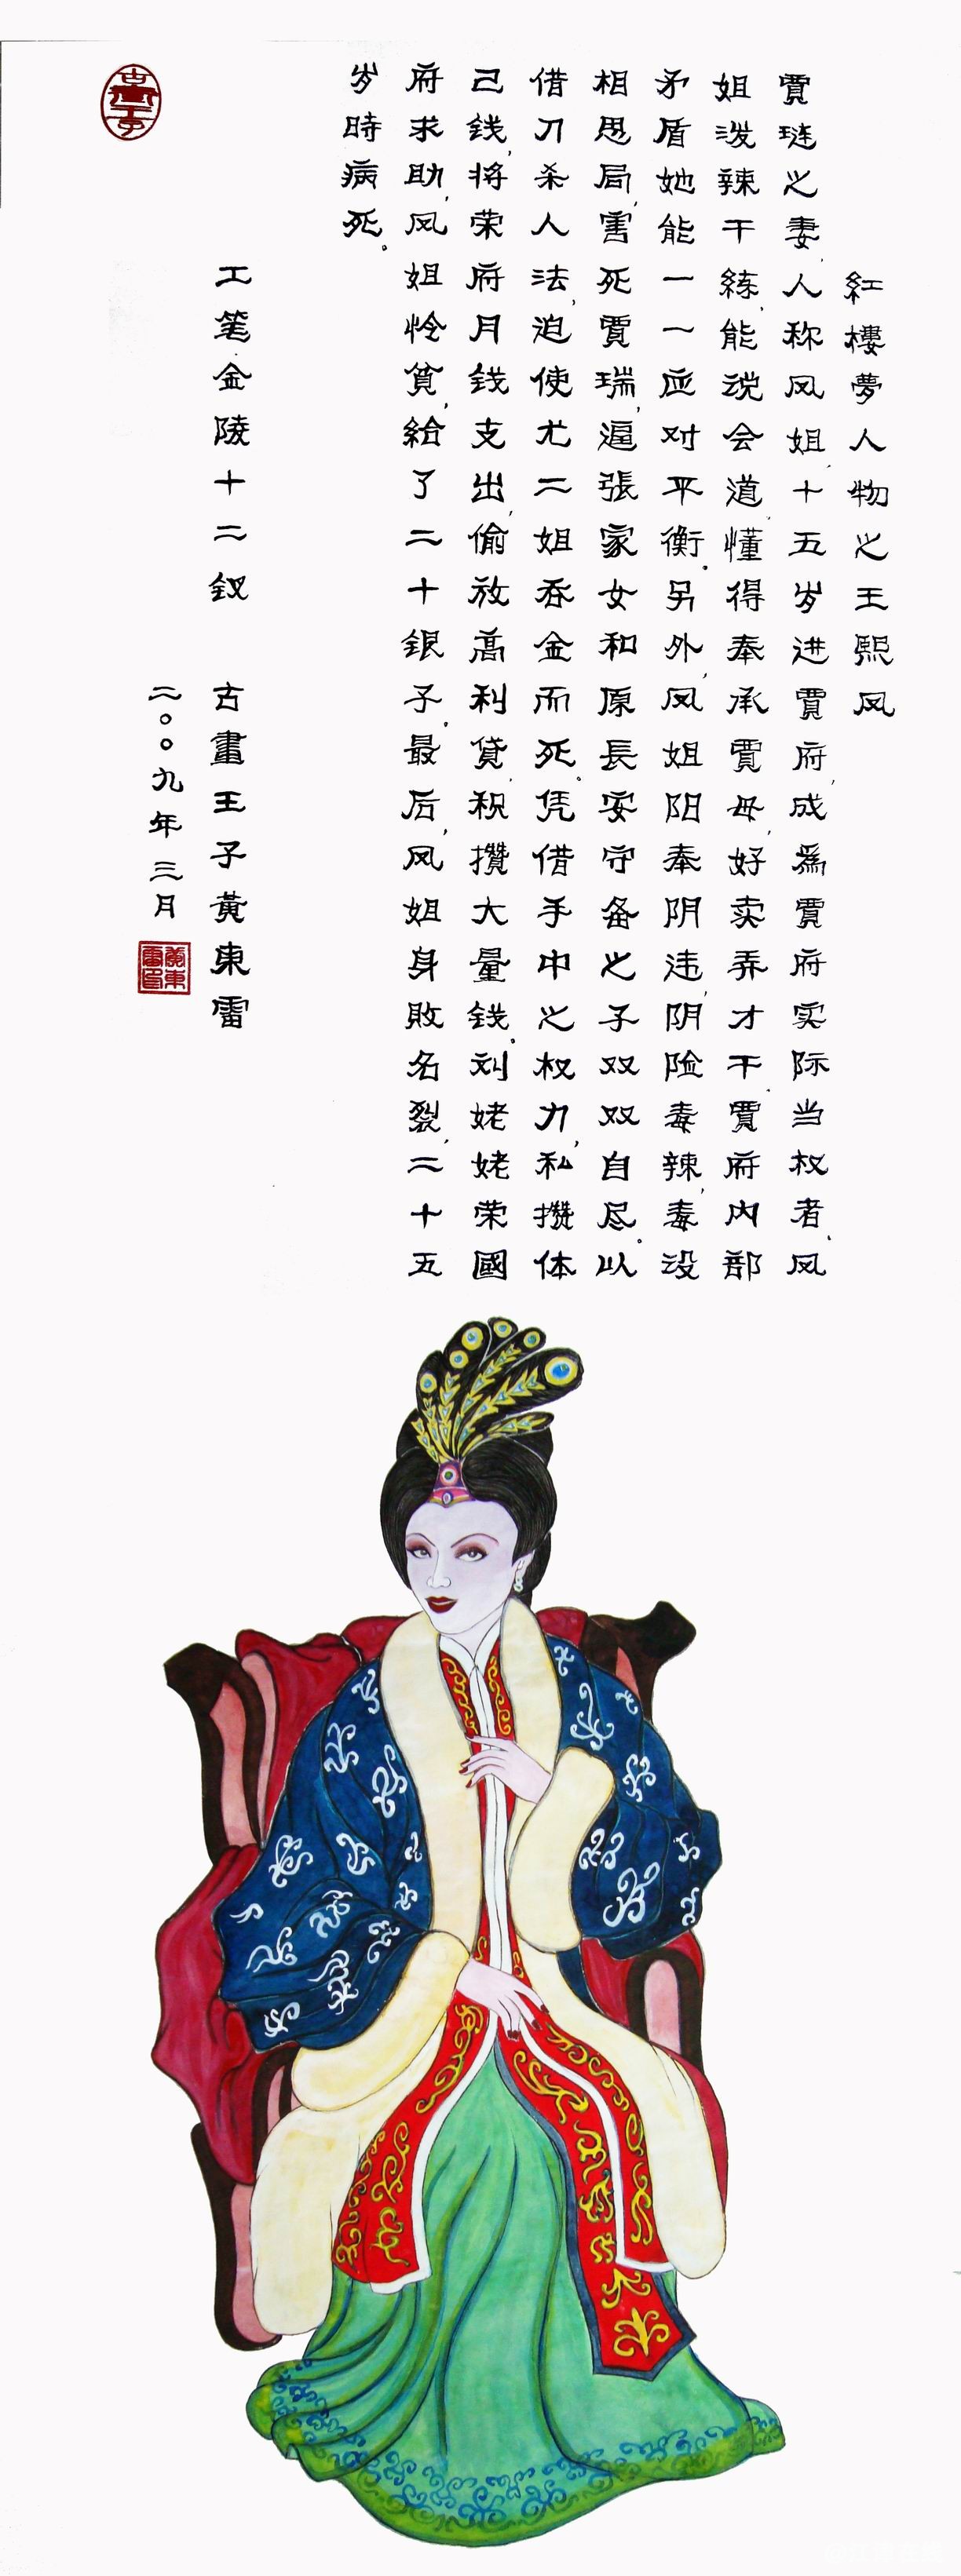 紅樓夢人物之王熙凤
賈琏之妻,人称凤姐,十五岁进賈府,成爲賈府实际当权者、凤
姐泼辣干練,能说会道,懂得奉承賈母,好卖弄才干,賈府内部
矛盾她能一一应对平衡。另外,凤姐阳奉阴违,阴险毒辣,毒设
相思局,害死賈瑞,逼張家女和原長安守备之子双双自尽。以
借刀杀人法,迫使尤二姐吞金而死。凭借手中之权力,私攒体
己钱,将荣府月钱支出,偷放高利贷,积攒大量钱。刘姥姥荣國
府求助,凤姐怜貧,給了二十銀子。最后,凤姐身敗名裂,二十五
岁時病死。
工笔金陵十二釵 古畫王子黃東雷
二〇〇九年三月
黃東雷印